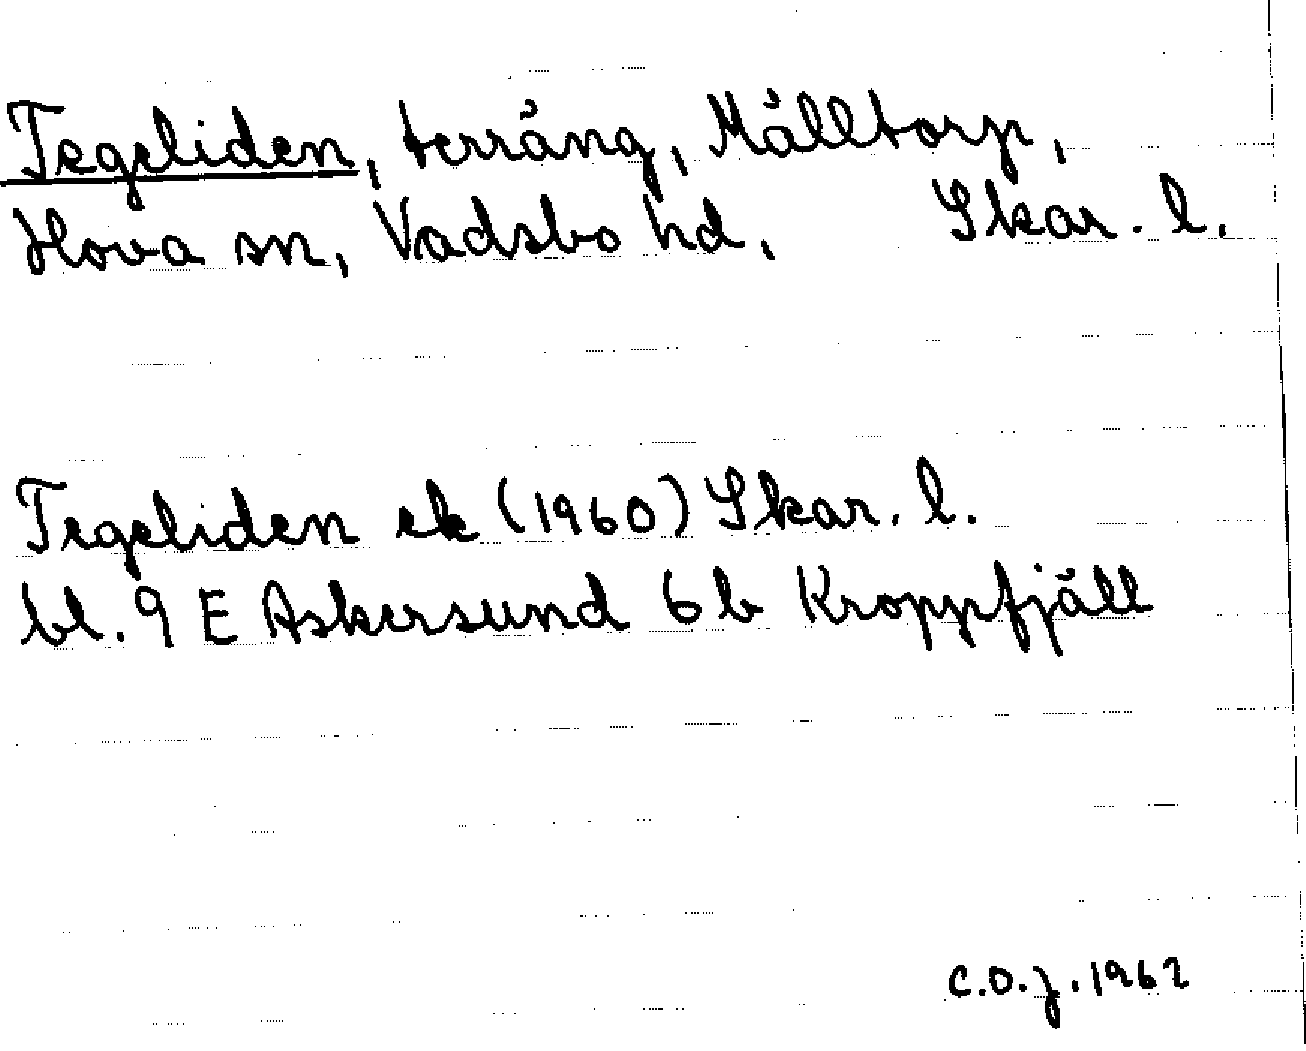 Tegeliden, terräng, Mälltorp,
Hova sn, Vadsbo hd, Skar. l.
Tegeliden ek (1960) Skar. l.
bl. 9 E Askersund 6 b Kroppfjäll
C.O.J. 1962